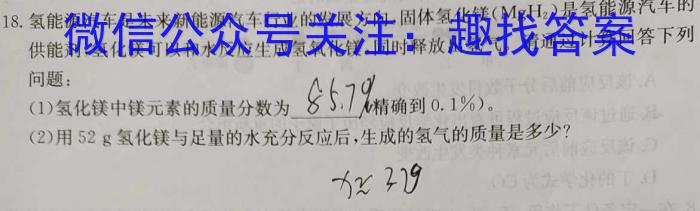 18.氢能源汽车是未来新能源汽车行业的发展方向,固体氢化镁(MgH₂)是氢能源汽车的
微信公众号关注:趣找答案
供能剂,氢化镁可以和水反应生成氢氧化镁,同时释放出氢气。请通过计算回答下列
问题:
(1)氢化镁中镁元素的质量分数为 85.7% (精确到0.1%)。
(2)用52 g氢化镁与足量的水充分反应后,生成的氢气的质量是多少?